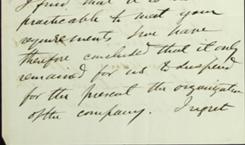 I find that it is
practicable to meet your
requirements & we have
therefore concluded that it only
remained for us to suspend
for the present the organization
of the company. I regret